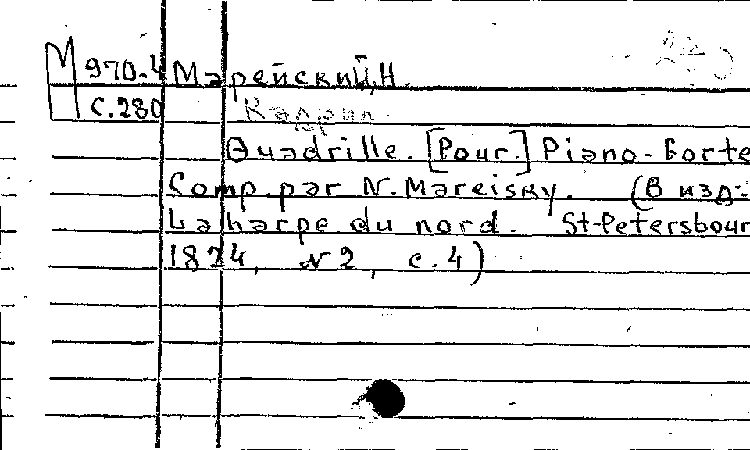 М 970.4 Марейский, Н.
с.280 Кадрил
Quadrille. [Pour.] Piano-Forte
Comp. par N. Mareisky. (В изд.:
La harpe du nord. St-Petersbour
1824, № 2, с.4)